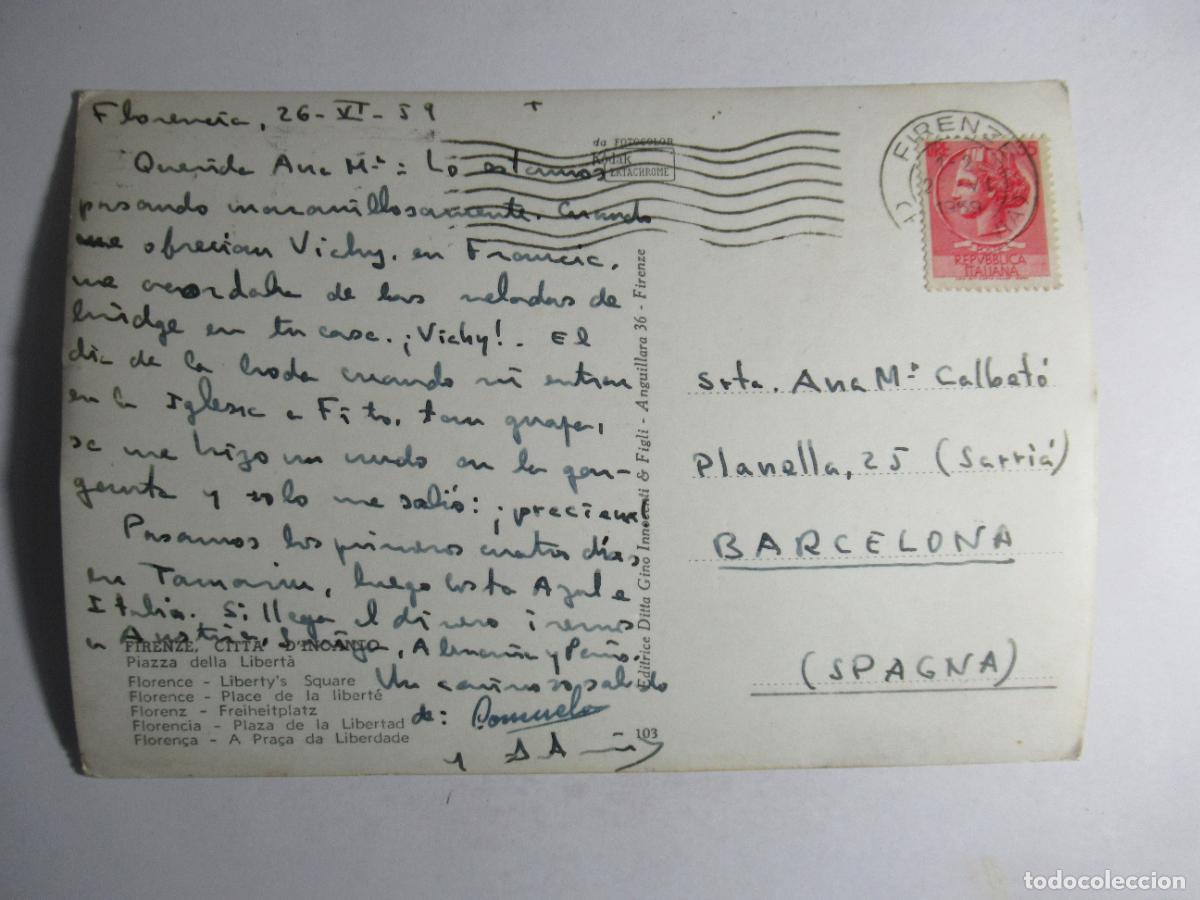 Florencia, 26-VI-59
Querida Ana Mª: Lo estamos
pasando maravillosamente. Cuando
me ofrecian Vichy, en Francia,
me acordaba de las veladas de
bridge en tu casa. ¡Vichy!. El
dia de la boda cuando vi entrar
en la Iglesia a Fito, tan guapa,
se me hizo un nudo en la gar-
ganta y solo me salió: ¡preciosa
Pasamos los primeros cuatro días
en Tamariu, luego Costa Azul e
Italia. Si llega el dinero iremos
a Austria, Alemania y París.
Un cariñoso saludo
de: Consuelo
y
FIRENZE, CITTÀ D'INCANTO
Piazza della Libertà
Florence - Liberty's Square
Florence - Place de la liberté
Florenz - Freiheitplatz
Florencia - Plaza de la Libertad
Florença - A Praça da Liberdade
da FOTOCOLOR
Kodak
EKTACHROME
Editrice Ditta Gino Innocenti & Figli - Anguillara 36 - Firenze
103
FIRENZE
1959
REPVBBLICA
ITALIANA
Srta. Ana Mª Calbetó
Planella, 25 (Sarriá)
BARCELONA
(SPAGNA)
todocoleccion